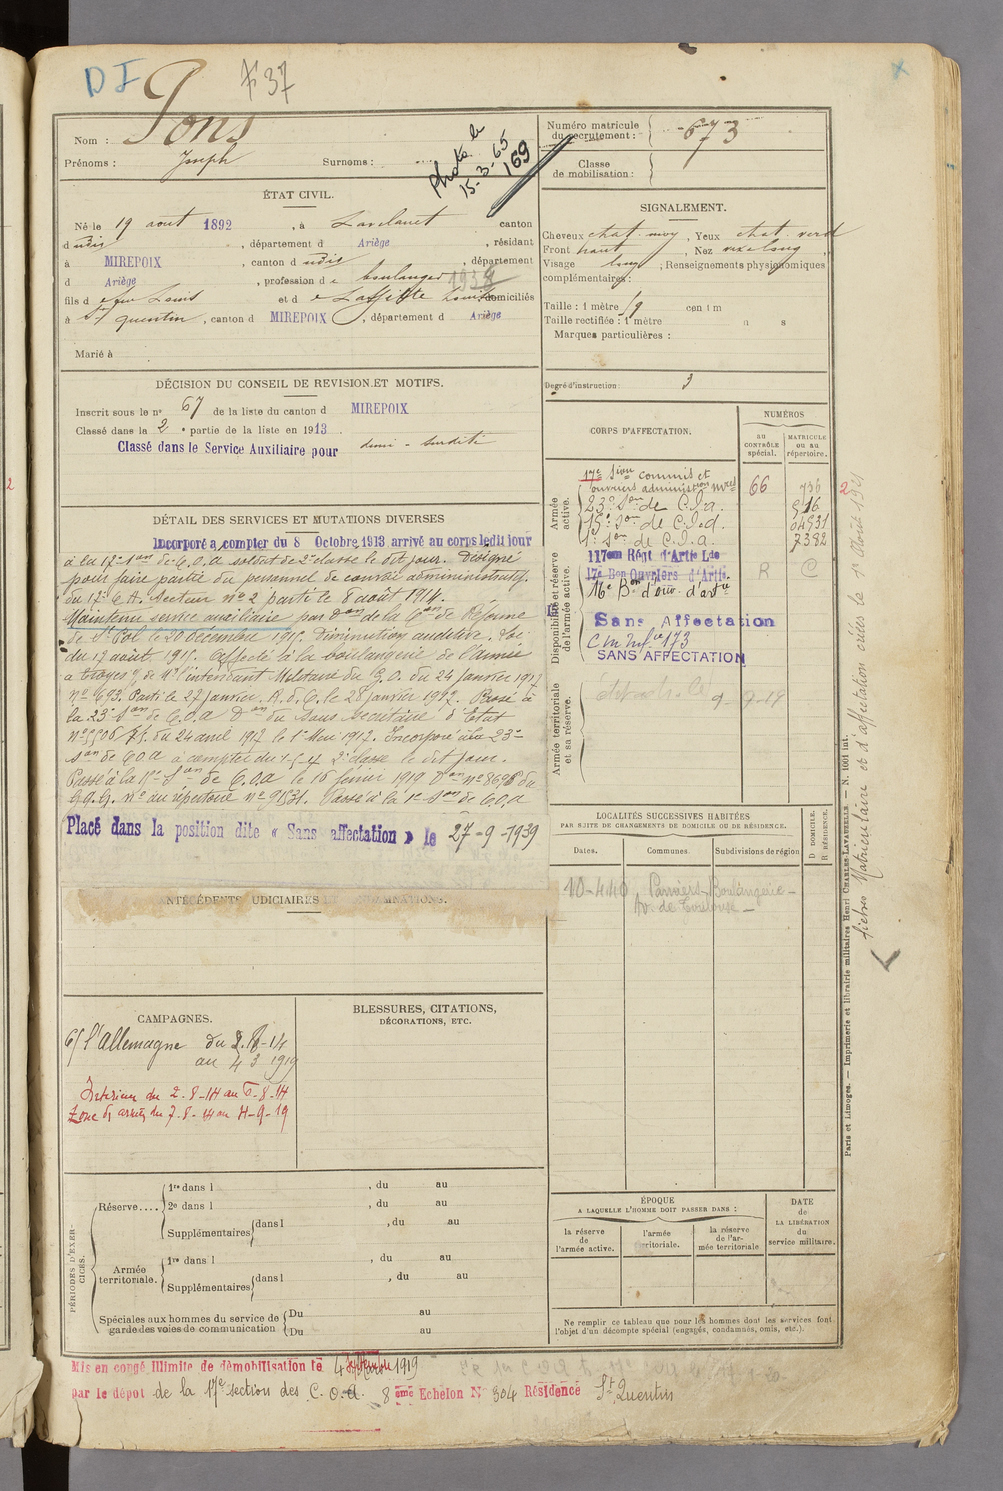 DI
Pons
Nom :
Prénoms : Joseph Surnoms :
Photo le
15-3-65
169
Numéro matricule
du recrutement : 673
Classe
de mobilisation :
ÉTAT CIVIL.
Né le 19 août 1892, à Lavelanet canton
dudis, département d Ariège, résidant
à MIREPOIX, canton d udis, département
d Ariège, profession de boulanger
fils de feu Louis et de Laffitte domiciliés
à St quentin, canton d MIREPOIX, département d Ariège
Marié à
SIGNALEMENT.
Cheveux chat. moy, Yeux chat. verd
Front haut, Nez
Visage long ; Renseignements physionomiques
complémentaires :
Taille : 1 mètre cent m
Taille rectifiée : 1 mètre
Marques particulières :
Degré d'instruction : 3
DÉCISION DU CONSEIL DE REVISION ET MOTIFS.
Inscrit sous le n° 67 de la liste du canton d MIREPOIX
Classé dans la 2e partie de la liste en 1913
Classé dans le Service Auxiliaire pour demi-surdité
DÉTAIL DES SERVICES ET MUTATIONS DIVERSES
Incorporé à compter du 8 Octobre 1913 arrivé au corps ledit jour
à la 17e Son de C.O.A soldat de 2e classe le dit jour. Désigné
pour faire partie du personnel de convoi administratif
du 17e C.A. Secteur n° 2 parti le 8 août 1914.
Maintenu service auxiliaire par Don de la Con de Réforme
de St Pol le 20 décembre 1915. Diminution auditive. Loi
du 17 août 1915. Affecté à la boulangerie de l'Armée
à troyes de Mr l'intendant Militaire du G.O. du 24 janvier 1917
N° 693. Parti le 27 janvier. A.d.C. le 28 janvier 1917. Passé à
la 23e Son de C.O.A Don du Sous Secrétaire d'Etat
n° 5506 7/5 du 24 avril 1917 le 1er Mai 1917. Incorporé à la 23e
Son de C.O.A à compter du 1-5-17 2e classe le dit jour.
Passé à la 15e Son de C.O.A le 16 février 1919 Don n° 8696 du
G.Q.G. n° au répertoire n° 91531. Passé à la 1re Son de C.O.A
Placé dans la position dite « Sans affectation » le 27-9-1939
CORPS D'AFFECTATION.
NUMÉROS
au
CONTRÔLE
spécial.
MATRICULE
ou au
répertoire.
Armée
active.
17e Son commis et
ouvriers administion mres 66 736
23e Son de C.O.A. 916
15e Son de C.O.A. 04931
1e Son de C.O.A. 7392
Disponibilité et réserve
de l'armée active.
117em Régt d'Artie Lde
17e Bon Ouvriers d'Artie. R C
16e Bon d'ouv. d'artie
Sans Affectation
SANS AFFECTATION
Armée territoriale
et sa réserve.
9-9-19
LOCALITÉS SUCCESSIVES HABITÉES
PAR SUITE DE CHANGEMENTS DE DOMICILE OU DE RÉSIDENCE.
Dates.
Communes.
Subdivisions de région
D DOMICILE.
R RÉSIDENCE.
10-4-40 Pamiers-Boulangerie-
Av. de Toulouse-
ANTÉCÉDENTS JUDICIAIRES ET CONDAMNATIONS.
CAMPAGNES.
C/ l'Allemagne du 2.8-14
au 4 3 1919
Intérieur du 2-8-14 au 6-8-14
Zone des armées du 7-8-14 au 4-9-19
BLESSURES, CITATIONS,
DÉCORATIONS, ETC.
PÉRIODES D'EXERCICES.
Réserve....
1re dans l , du au
2e dans l , du au
Supplémentaires dans l , du au
Armée
territoriale.
1re dans l , du au
Supplémentaires dans l , du au
Spéciales aux hommes du service de
garde des voies de communication
Du au
Du au
ÉPOQUE
A LAQUELLE L'HOMME DOIT PASSER DANS :
la réserve
de
l'armée active.
l'armée
territoriale.
la réserve
de l'ar-
mée territoriale
DATE
de
LA LIBÉRATION
du
service militaire.
Ne remplir ce tableau que pour les hommes dont les services font
l'objet d'un décompte spécial (engagés, condamnés, omis, etc.).
Paris et Limoges. — Imprimerie et librairie militaires Henri CHARLES-LAVAUZELLE. — N. 1001 int.
fiches Matriculaire et d'affectation créées le 1er Août 1921
Mis en congé illimité de démobilisation le 4 1919
par le dépôt de la 17e section des C.O.A. 8ème Echelon N° 304 Résidence St Quentin